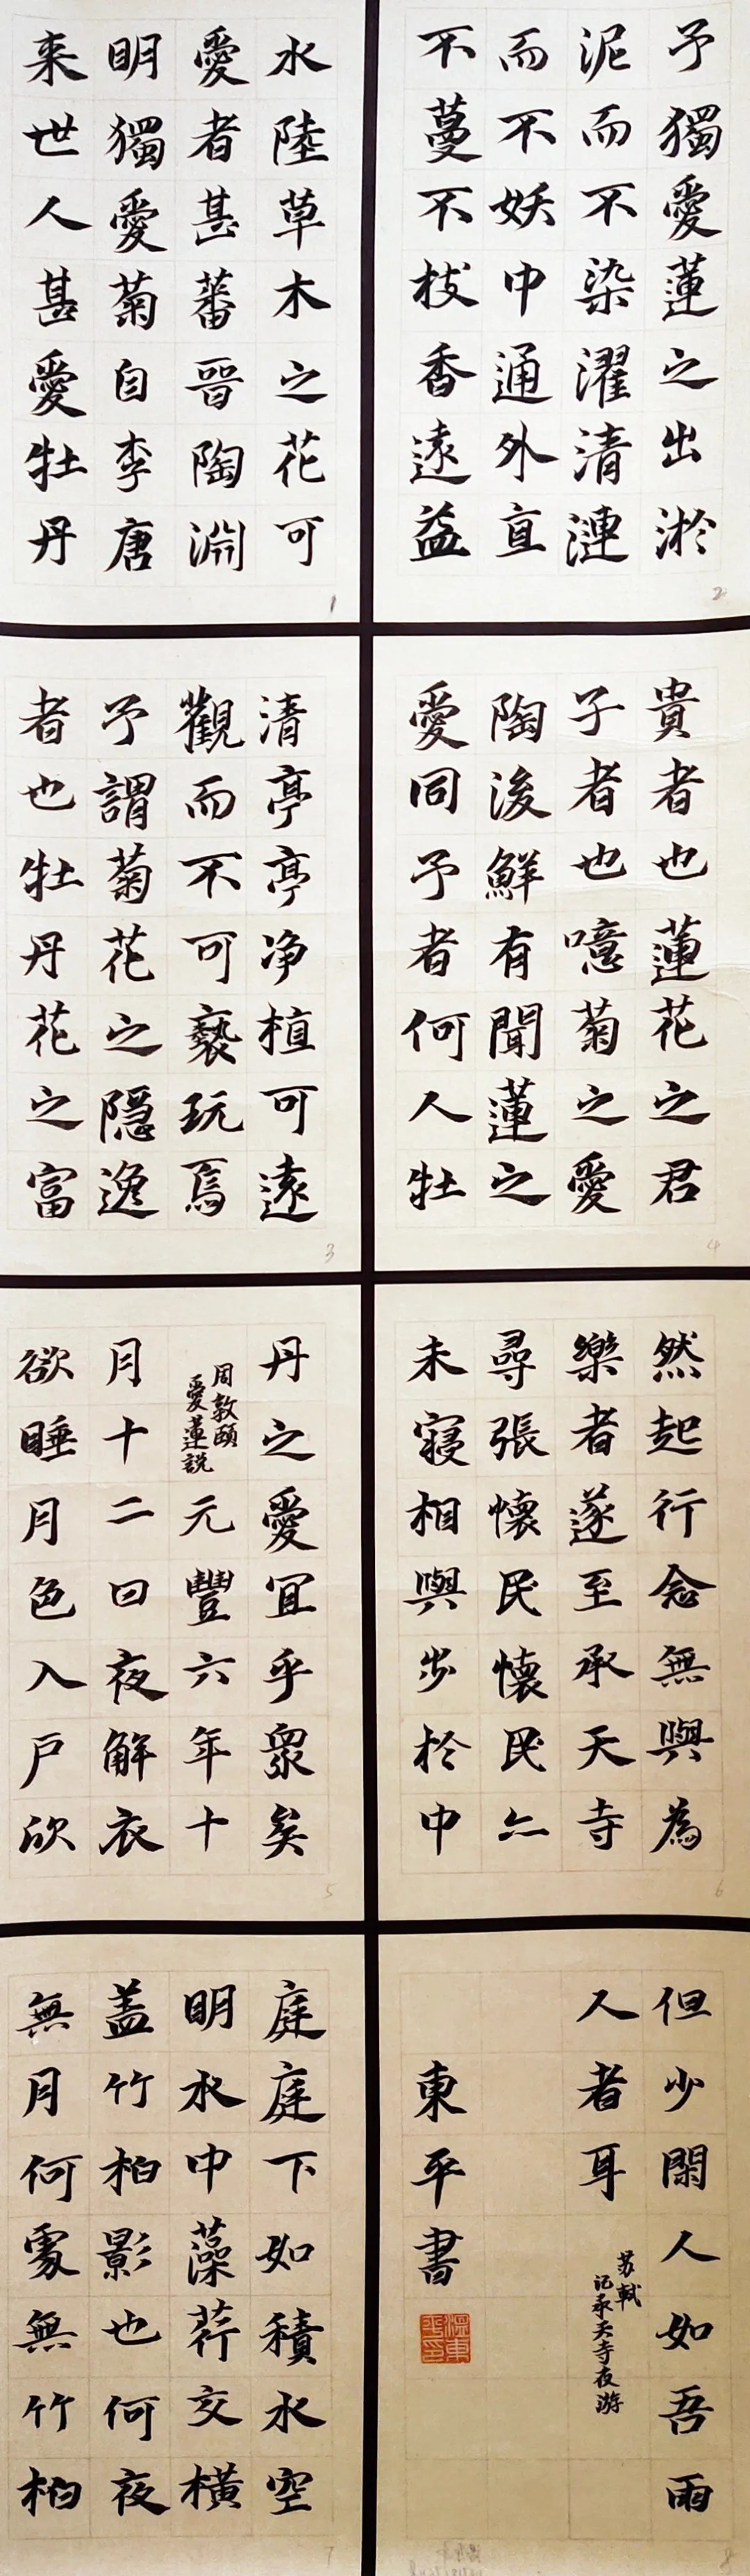 水陸草木之花可
愛者甚蕃晉陶淵
明獨愛菊自李唐
来世人甚愛牡丹
1
予獨愛蓮之出淤
泥而不染濯清漣
而不妖中通外直
不蔓不枝香遠益
2
清亭亭净植可遠
觀而不可褻玩焉
予謂菊花之隱逸
者也牡丹花之富
3
貴者也蓮花之君
子者也噫菊之愛
陶後鮮有聞蓮之
愛同予者何人牡
4
丹之愛宜乎衆矣
周敦頤
愛蓮説
元豐六年十
月十二日夜解衣
欲睡月色入戶欣
5
然起行念無與為
樂者遂至承天寺
尋張懷民懷民亦
未寢相與步於中
6
庭庭下如積水空
明水中藻荇交橫
蓋竹柏影也何夜
無月何處無竹柏
7
但少閑人如吾兩
人者耳
苏軾
记承天寺夜游
東平書
溫東平印
8